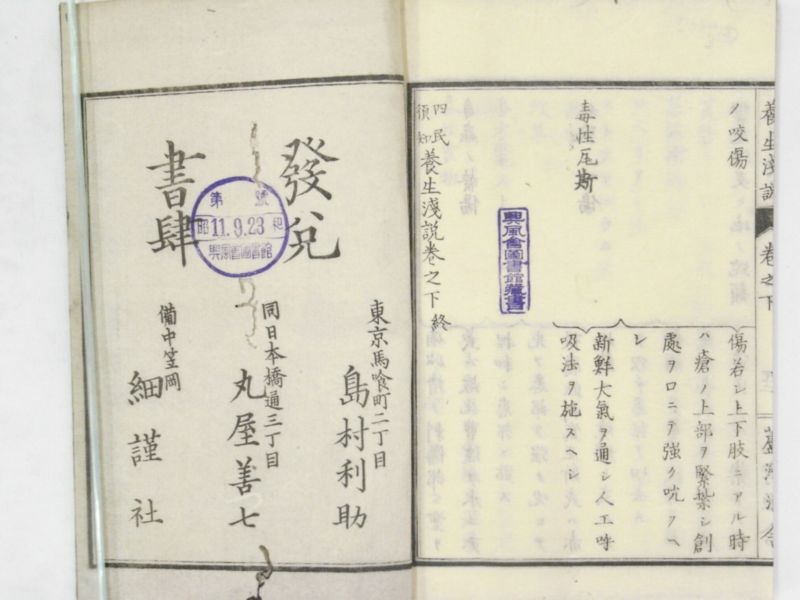 養生淺説
卷之下
ノ咬傷
傷若シ上下肢ニアル時
ハ瘡ノ上部ヲ緊紮シ創
處ヲロニテ強ク吮フヘ
シ
毒性瓦斯
新鮮大氣ヲ通シ人工呼
吸法ヲ施スヘシ
四民須知養生淺説卷之下終
興風會圖書館藏書
發兌
書肆
第 號
昭 11.9.23 和
興風會圖書館
東京馬喰町二丁目
島村利助
同日本橋通三丁目
丸屋善七
備中笠岡
細謹社